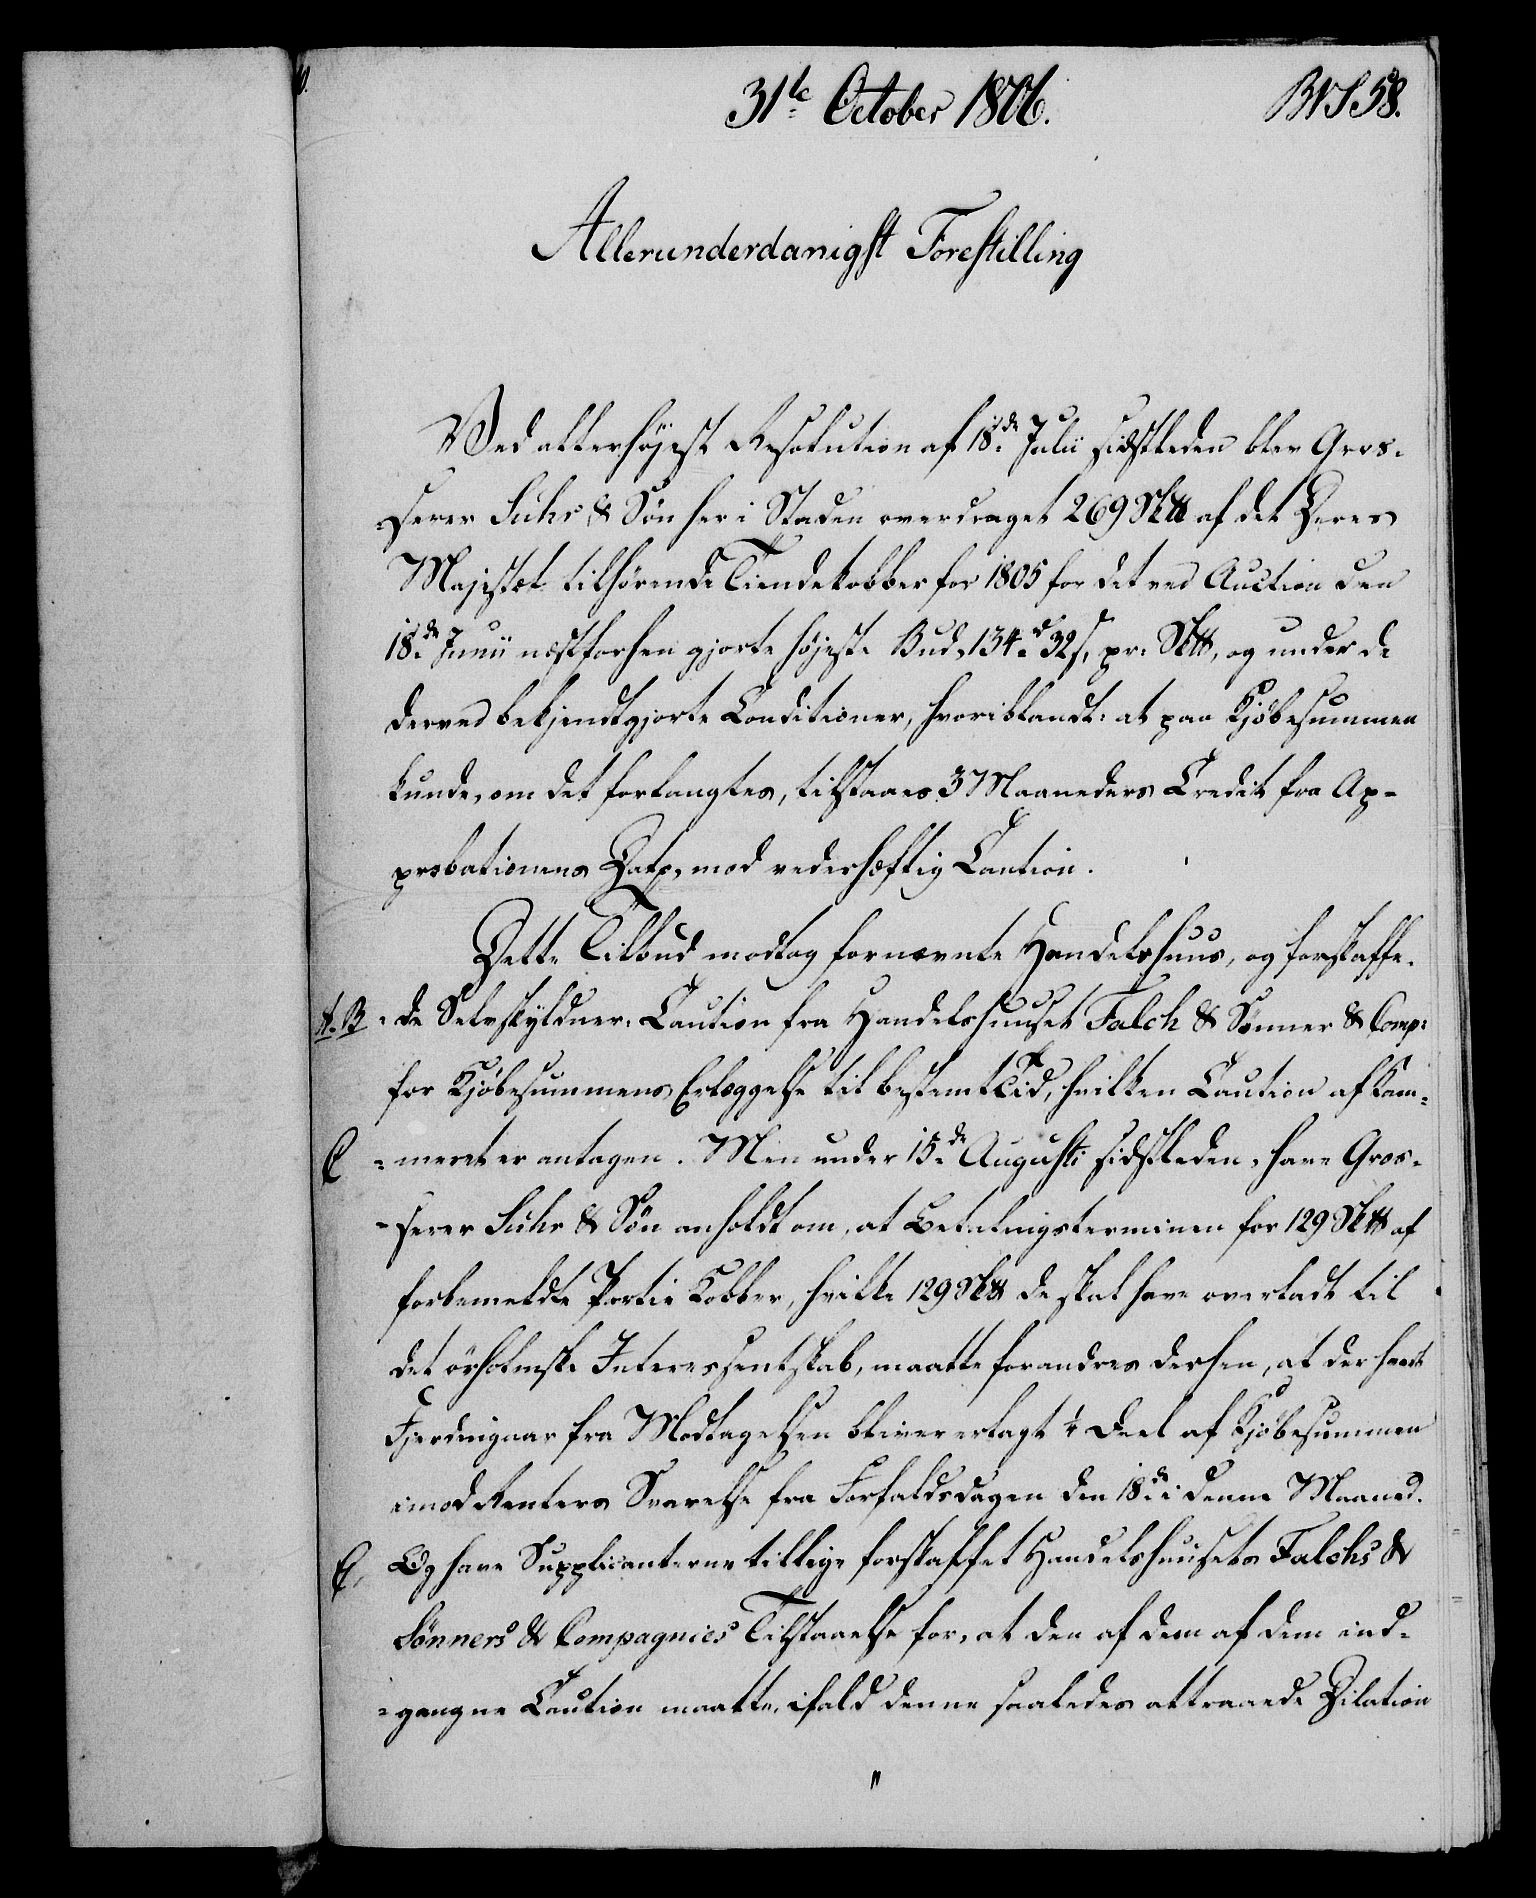 31te October 1806.
BVS 58.
Allerunderdanigst Forestilling
Ved allerhöjest Resolution af 18de Julii sidstleden blev Gros-
-serer Suhr & Sön her i Staden overdraget 269 Sk℔ af det Deres
Majestæt tilhörende Tiendekobber for 1805 for det ved Auction den
18de Junii næstforhen gjorte höjeste Bud, 134 rd 32 s, pr. Sk℔, og under de
derved bekjendtgjorte Conditioner, hvoriblandt: at paa Kjöbesummen
kunde, om det forlangtes, tilstaaes 3 Maaneders Credit fra Ap-
probationens Dato, mod vederhæftig Caution.
Dette Tilbud modtog fornævnte Handelshuus, og forskaffe-
A. B -de Selvskyldner-Caution fra Handelshuuset Falch & Sönner & Comp:
for Kjöbesummens Erlæggelse til bestemt Tid, hvilken Caution af Kam-
C -meret er antagen. Men under 15de Augusti sidstleden have Gros-
-serer Suhr & Sön anholdt om, at Betalingsterminen for 129 Sk℔ af
forbemeldte Partie Kobber, hvilke 129 Sk℔ de skal have overladt til
det örholmske Interessentskab, maatte forandres derhen, at der hvert
Fjerdingaar fra Modtagelsen bliver erlagt ¼ Deel af Kjöbesummen
imod Renters Svarelse fra Forfaldsdagen den 18de i denne Maaned.
C, Og have Supplicanterne tillige forskaffet Handelshuusets Falchs &
Sönners & Compagnies Tilstaaelse for, at den af dem af dem ind-
-gangne Caution maatte, ifald denne saaledes attraaede Dilation
"